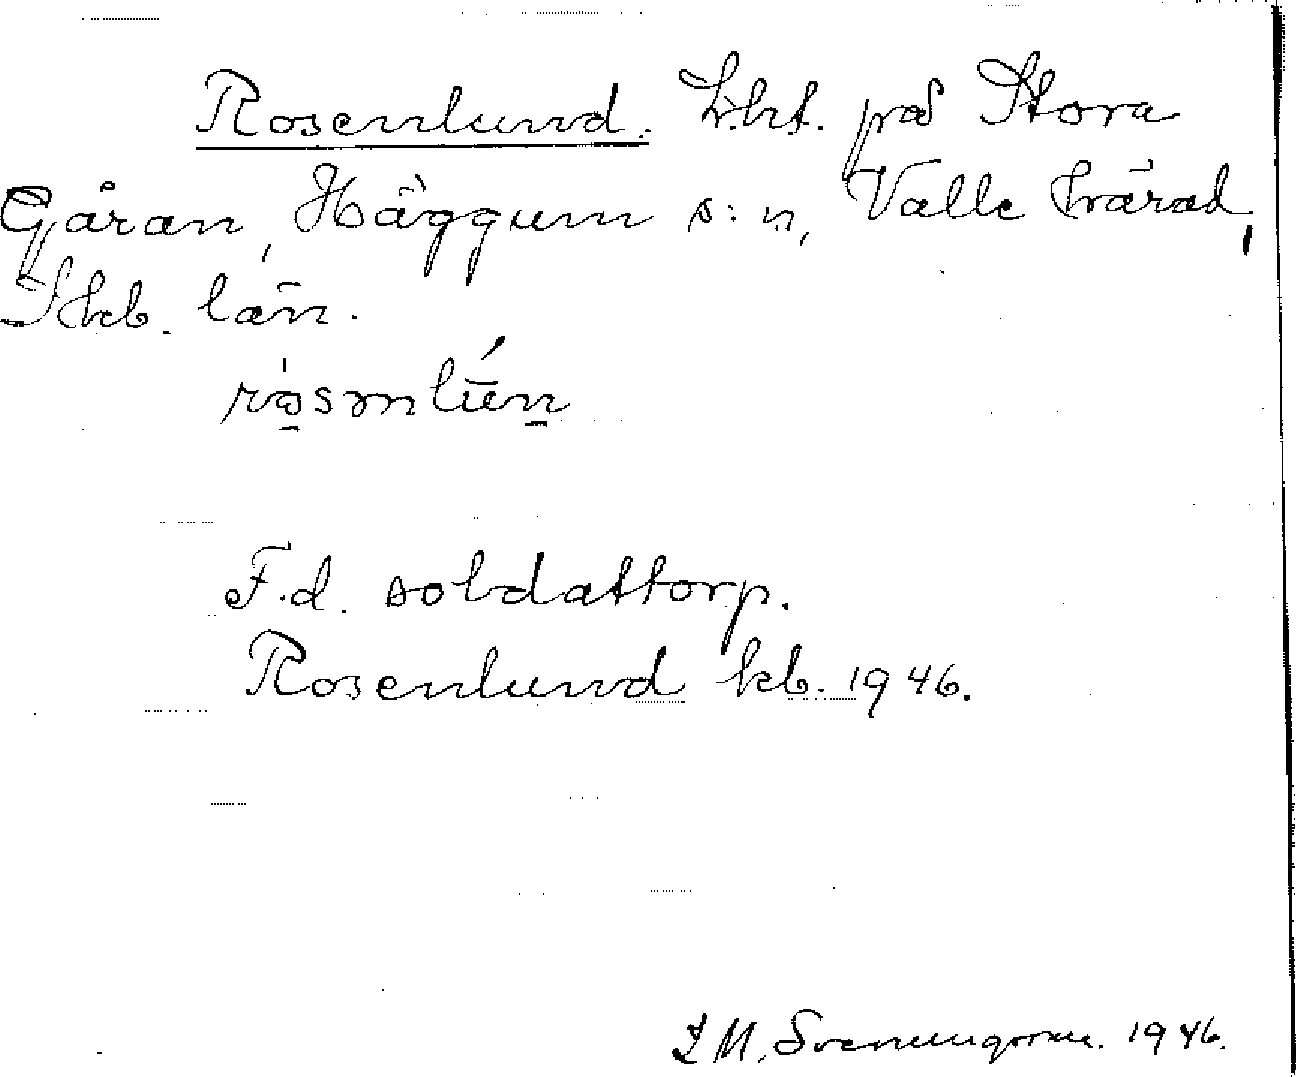 Rosenlund. Lht. på Stora
Gåran, Häggum s:n, Valle härad,
Skb. län.
F.d. soldattorp.
Rosenlund kb. 1946.
M. Svenungsson. 1946.